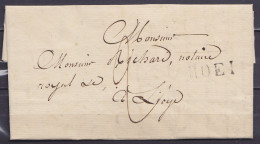 Monsieur
Monsieur Richard, notaire
royal &c,
à Liège
HUEI